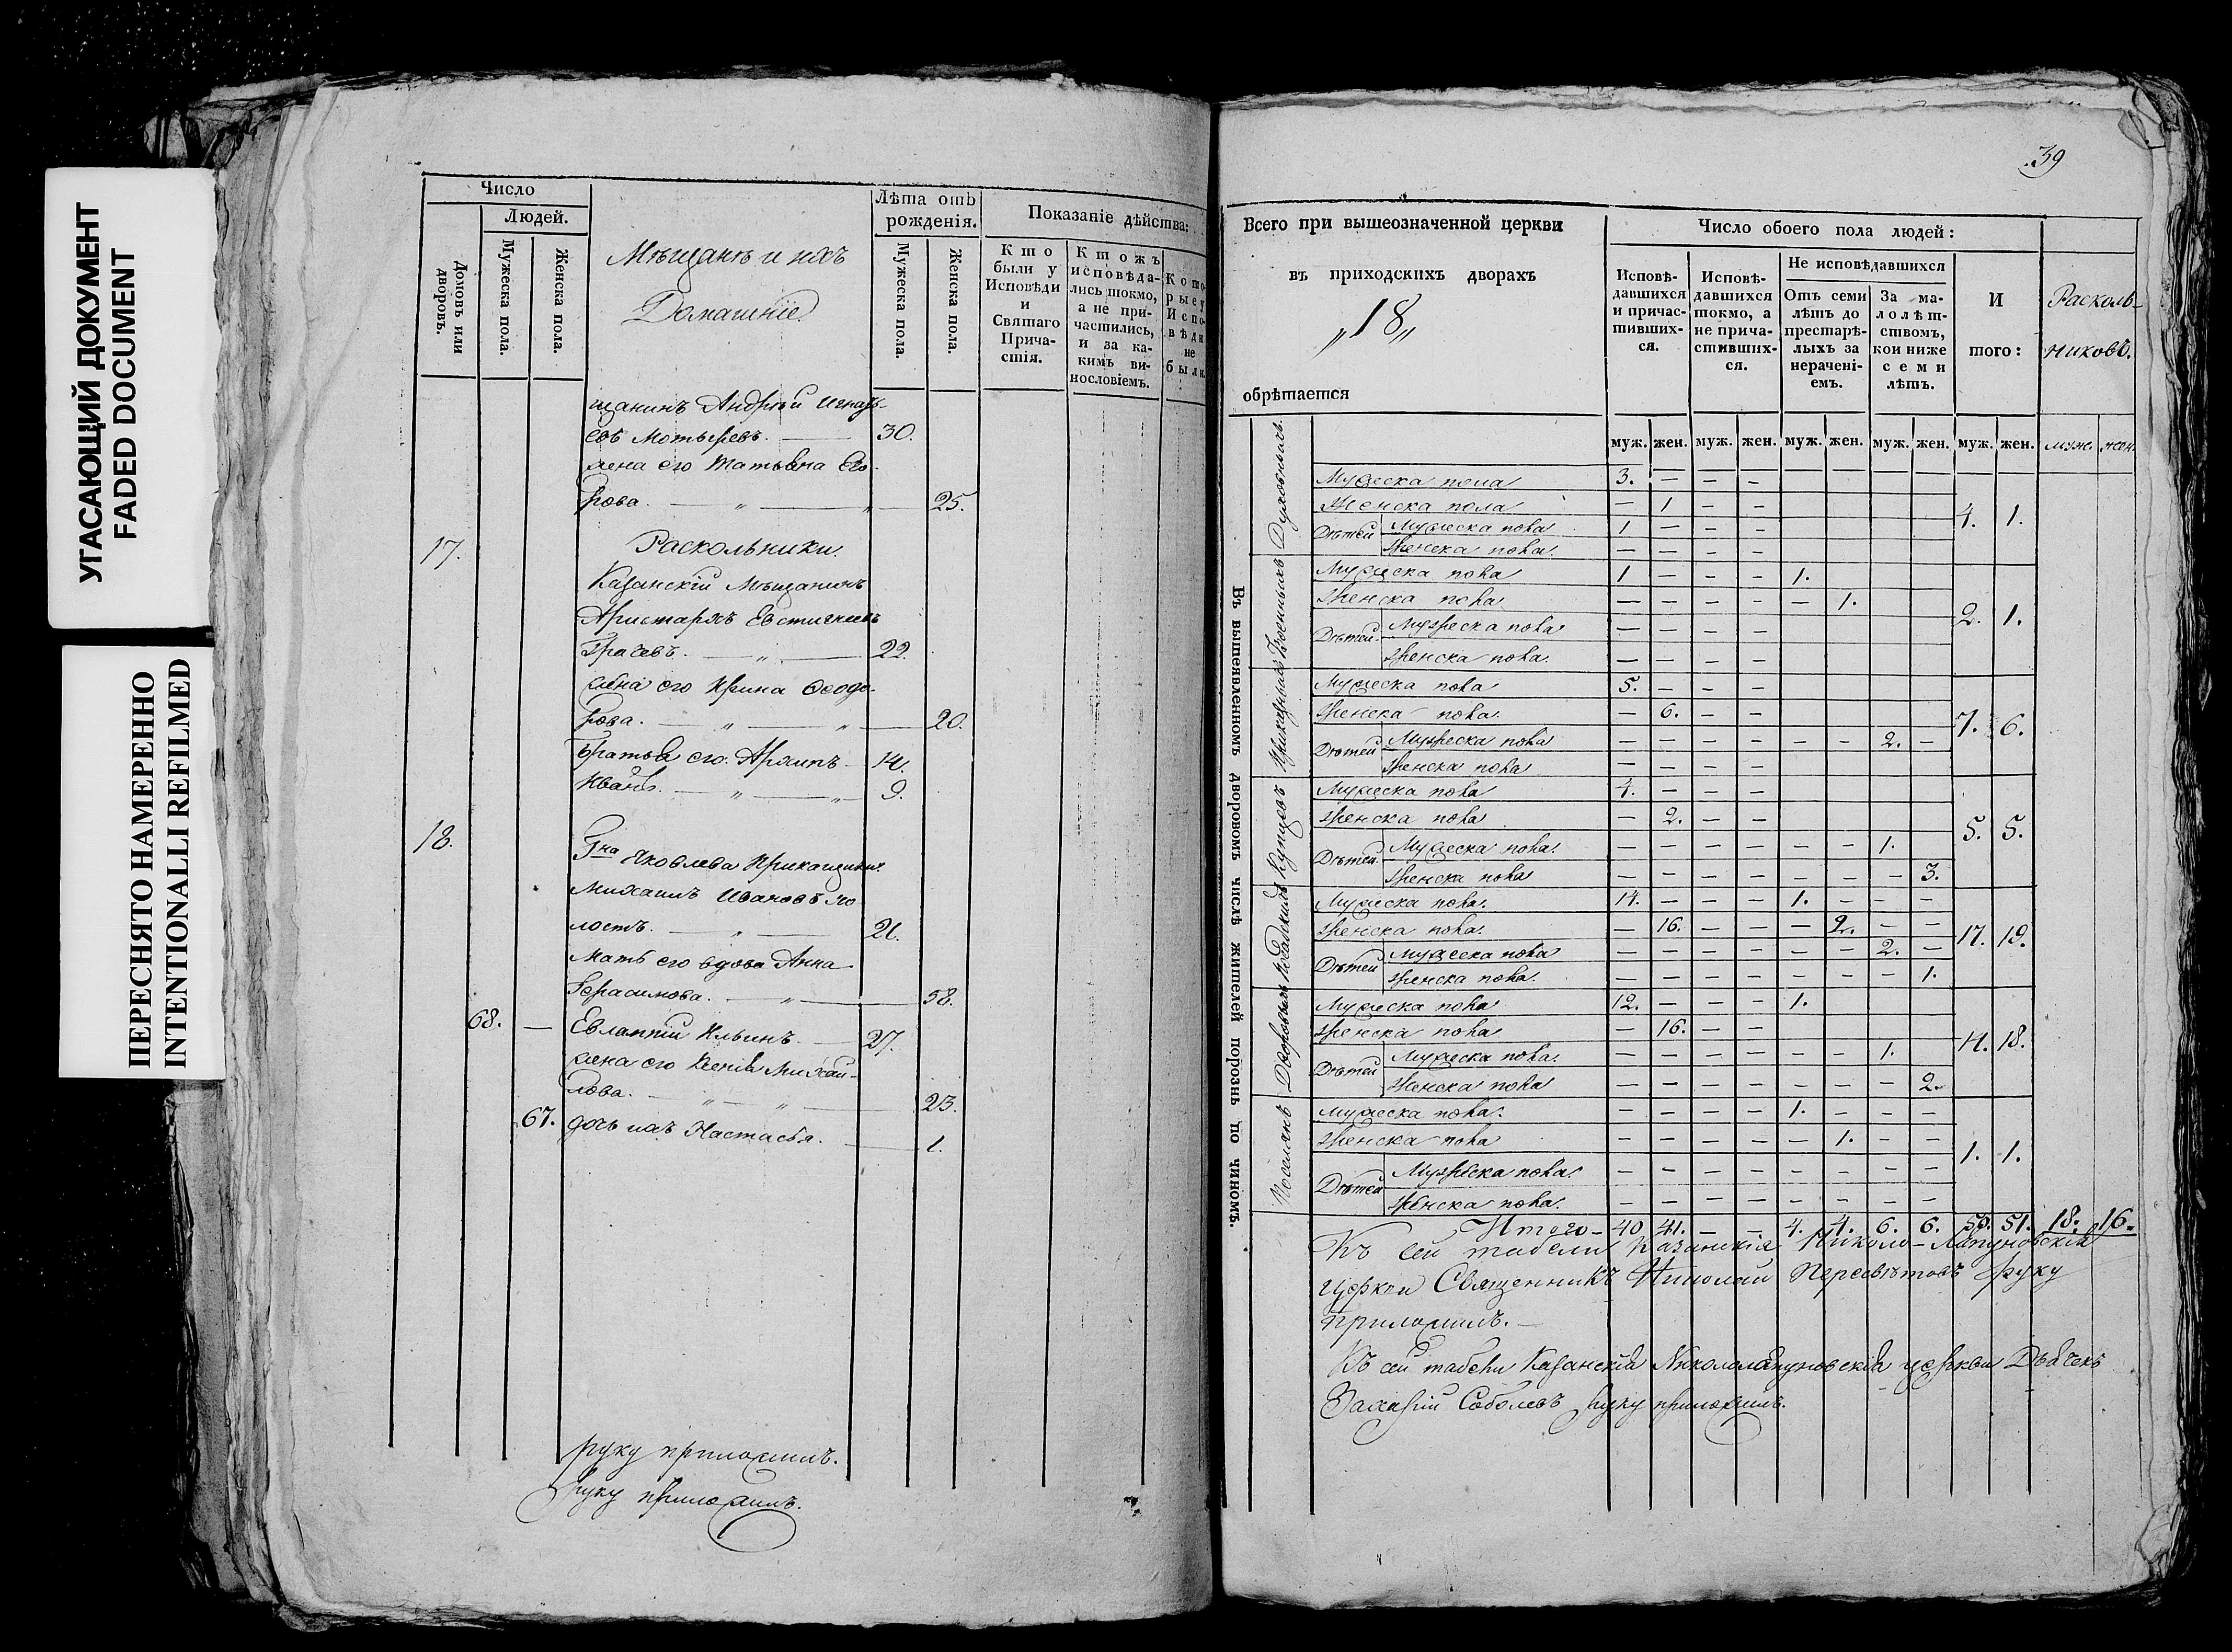 УГАСАЮЩИЙ ДОКУМЕНТ
FADED DOCUMENT
ПЕРЕСНЯТО НАМЕРЕННО
INTENTIONALLI REFILMED
Число
Людей.
Домовъ или дворовъ.
Мужеска пола.
Женска пола.
Мѣщанѣ и ихъ
Домашніе
Лѣта отъ
рожденія.
Мужеска пола.
Женска пола.
Показаніе дѣйства:
Кто
были у
Исповѣди
и
Святаго
Прича-
стія.
Ктожъ
исповѣда-
лись токмо,
а не при-
частились,
и за ка-
кимъ ви-
нословіемъ.
Кото-
рые у
Испо-
вѣди
не
были.
щанинъ Андрей Игнать-
евъ 30.
жена его Татьяна Его-
рова. 25.
17. Раскольники.
Казанскій Мѣщанинъ
Аристархъ Евстигнеевъ
Грачевъ. 22.
жена его Ирина Ѳеодо-
рова. 20.
братья его Архипъ 14.
Иванъ. 9.
18. Гна Яковлева Прикащики.
Михаилъ Ивановъ
21.
Мать его вдова Анна
Герасимова. 58.
68. — Евлампій Ильинъ. 27.
жена его Ксенія Михай-
лова. 23.
67. дочь ихъ Настасья. 1.
руку приложилъ.
руку приложилъ.
39
Всего при вышеозначенной церкви
въ приходскихъ дворахъ
„18„
обрѣтается
Число обоего пола людей:
Исповѣ-
давшихся
и причас-
тивших-
ся.
Исповѣ-
давшихся
токмо, а
не прича-
стивших-
ся.
Не исповѣдавшихся
Отъ семи
лѣтъ до
престарѣ-
лыхъ за
нерачені-
емъ.
За ма-
лолѣт-
ствомъ,
кои ниже
семи
лѣтъ.
И
того:
Расколь-
никовъ.
муж. жен. муж. жен. муж. жен. муж. жен. муж. жен. муж. жен.
Въ вышеявленномъ дворовомъ числѣ жителей порознь по чиномъ.
Духовныхъ
Мужеска пола 3. — — —
Женска пола — 1 — —
Дѣтей Мужеска пола 1 — — —
Женска пола. — — — —
4. 1.
Военныхъ
Мужеска пола 1 — — — 1.
Женска пола — — — — — 1.
Дѣтей Мужеска пола — — — —
Женска пола. — — — —
2. 1.
Приказныхъ
Мужеска пола 5. — — —
Женска пола. — 6. — —
Дѣтей Мужеска пола — — — — — — 2. —
Женска пола — — — —
7. 6.
Купцовъ
Мужеска пола 4. — — —
Женска пола — 2. — —
Дѣтей Мужеска пола. — — — — — — 1.
Женска пола — — — — — — — 3.
5. 5.
Посадскихъ
Мужеска пола. 14. — — — 1. — — —
Женска пола. — 16. — — — 2. — —
Дѣтей Мужеска пола — — — — — — 2. —
Женска пола. — — — — — — — 1.
17. 19.
Дворовыхъ
Мужеска пола 12. — — — 1.
Женска пола — 16. — —
Дѣтей Мужеска пола. — — — — — — 1.
Женска пола — — — — — — — 2.
14. 18.
Поселянъ
Мужеска пола. — — — — 1. — — —
Женска пола — — — — — 1. — —
Дѣтей Мужеска пола. — — — — — — — —
Женска пола. — — — — — — — —
1. 1.
Итого — 40 41. — — 4. 4. 6. 6. 50. 51. 18. 16.
Къ сей табели Казанскія Николо-Ляпуновскія
Церкви Священникъ Николай Пересвѣтовъ руку
приложилъ. —
Къ сей табели Казанскія Никололяпуновскія церкви Дьячекъ
Захарій Соболевъ руку приложилъ.